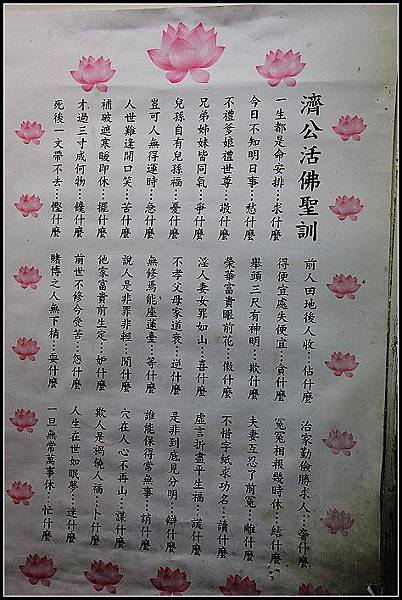 濟公活佛聖訓
一生都是命安排…求什麼
今日不知明日事…愁什麼
不禮爹娘禮世尊…敬什麼
兄弟姊妹皆同氣…爭什麼
兒孫自有兒孫福…憂什麼
豈可人無得運時…急什麼
人世難逢開口笑…苦什麼
補破遮寒暖即休…擺什麼
才過三寸成何物…饞什麼
死後一文帶不去…慳什麼
前人田地後人收…佔什麼
得便宜處失便宜…貪什麼
舉頭三尺有神明…欺什麼
榮華富貴眼前花…傲什麼
淫人妻女罪如山…喜什麼
不孝父母家道衰…逆什麼
無修焉能座蓮臺…等什麼
說人是非罪非輕…閒什麼
他家富貴前生定…妒什麼
前世不修今受苦…怨什麼
賭博之人無下梢…耍什麼
治家勤儉勝求人…奢什麼
冤冤相報幾時休…結什麼
夫妻互忍了前冤…離什麼
不惜字紙求功名…讀什麼
虛言折盡平生福…謊什麼
是非到底見分明…辯什麼
誰能保得常無事…什麼
穴在人心不再山…謀什麼
欺人是禍饒人福…卜什麼
人生在世如眠夢…迷什麼
一旦無常萬事休…忙什麼